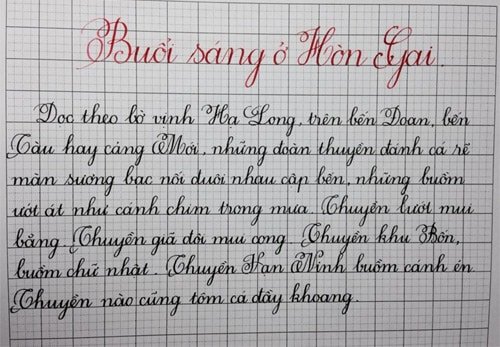 Buổi sáng ở Hòn Gai.
Dọc theo bờ vịnh Hạ Long, trên bến Đoan, bến
Tàu hay cảng Mới, những đoàn thuyền đánh cá rẽ
màn sương bạc nối đuôi nhau cập bến, những buồm
ướt át như cánh chim trong mưa. Thuyền lướt mui
bằng. Thuyền giã đôi mui cong. Thuyền khu Bốn,
buồm chữ nhật. Thuyền Vạn Ninh buồm cánh én.
Thuyền nào cũng tôm cá đầy khoang.